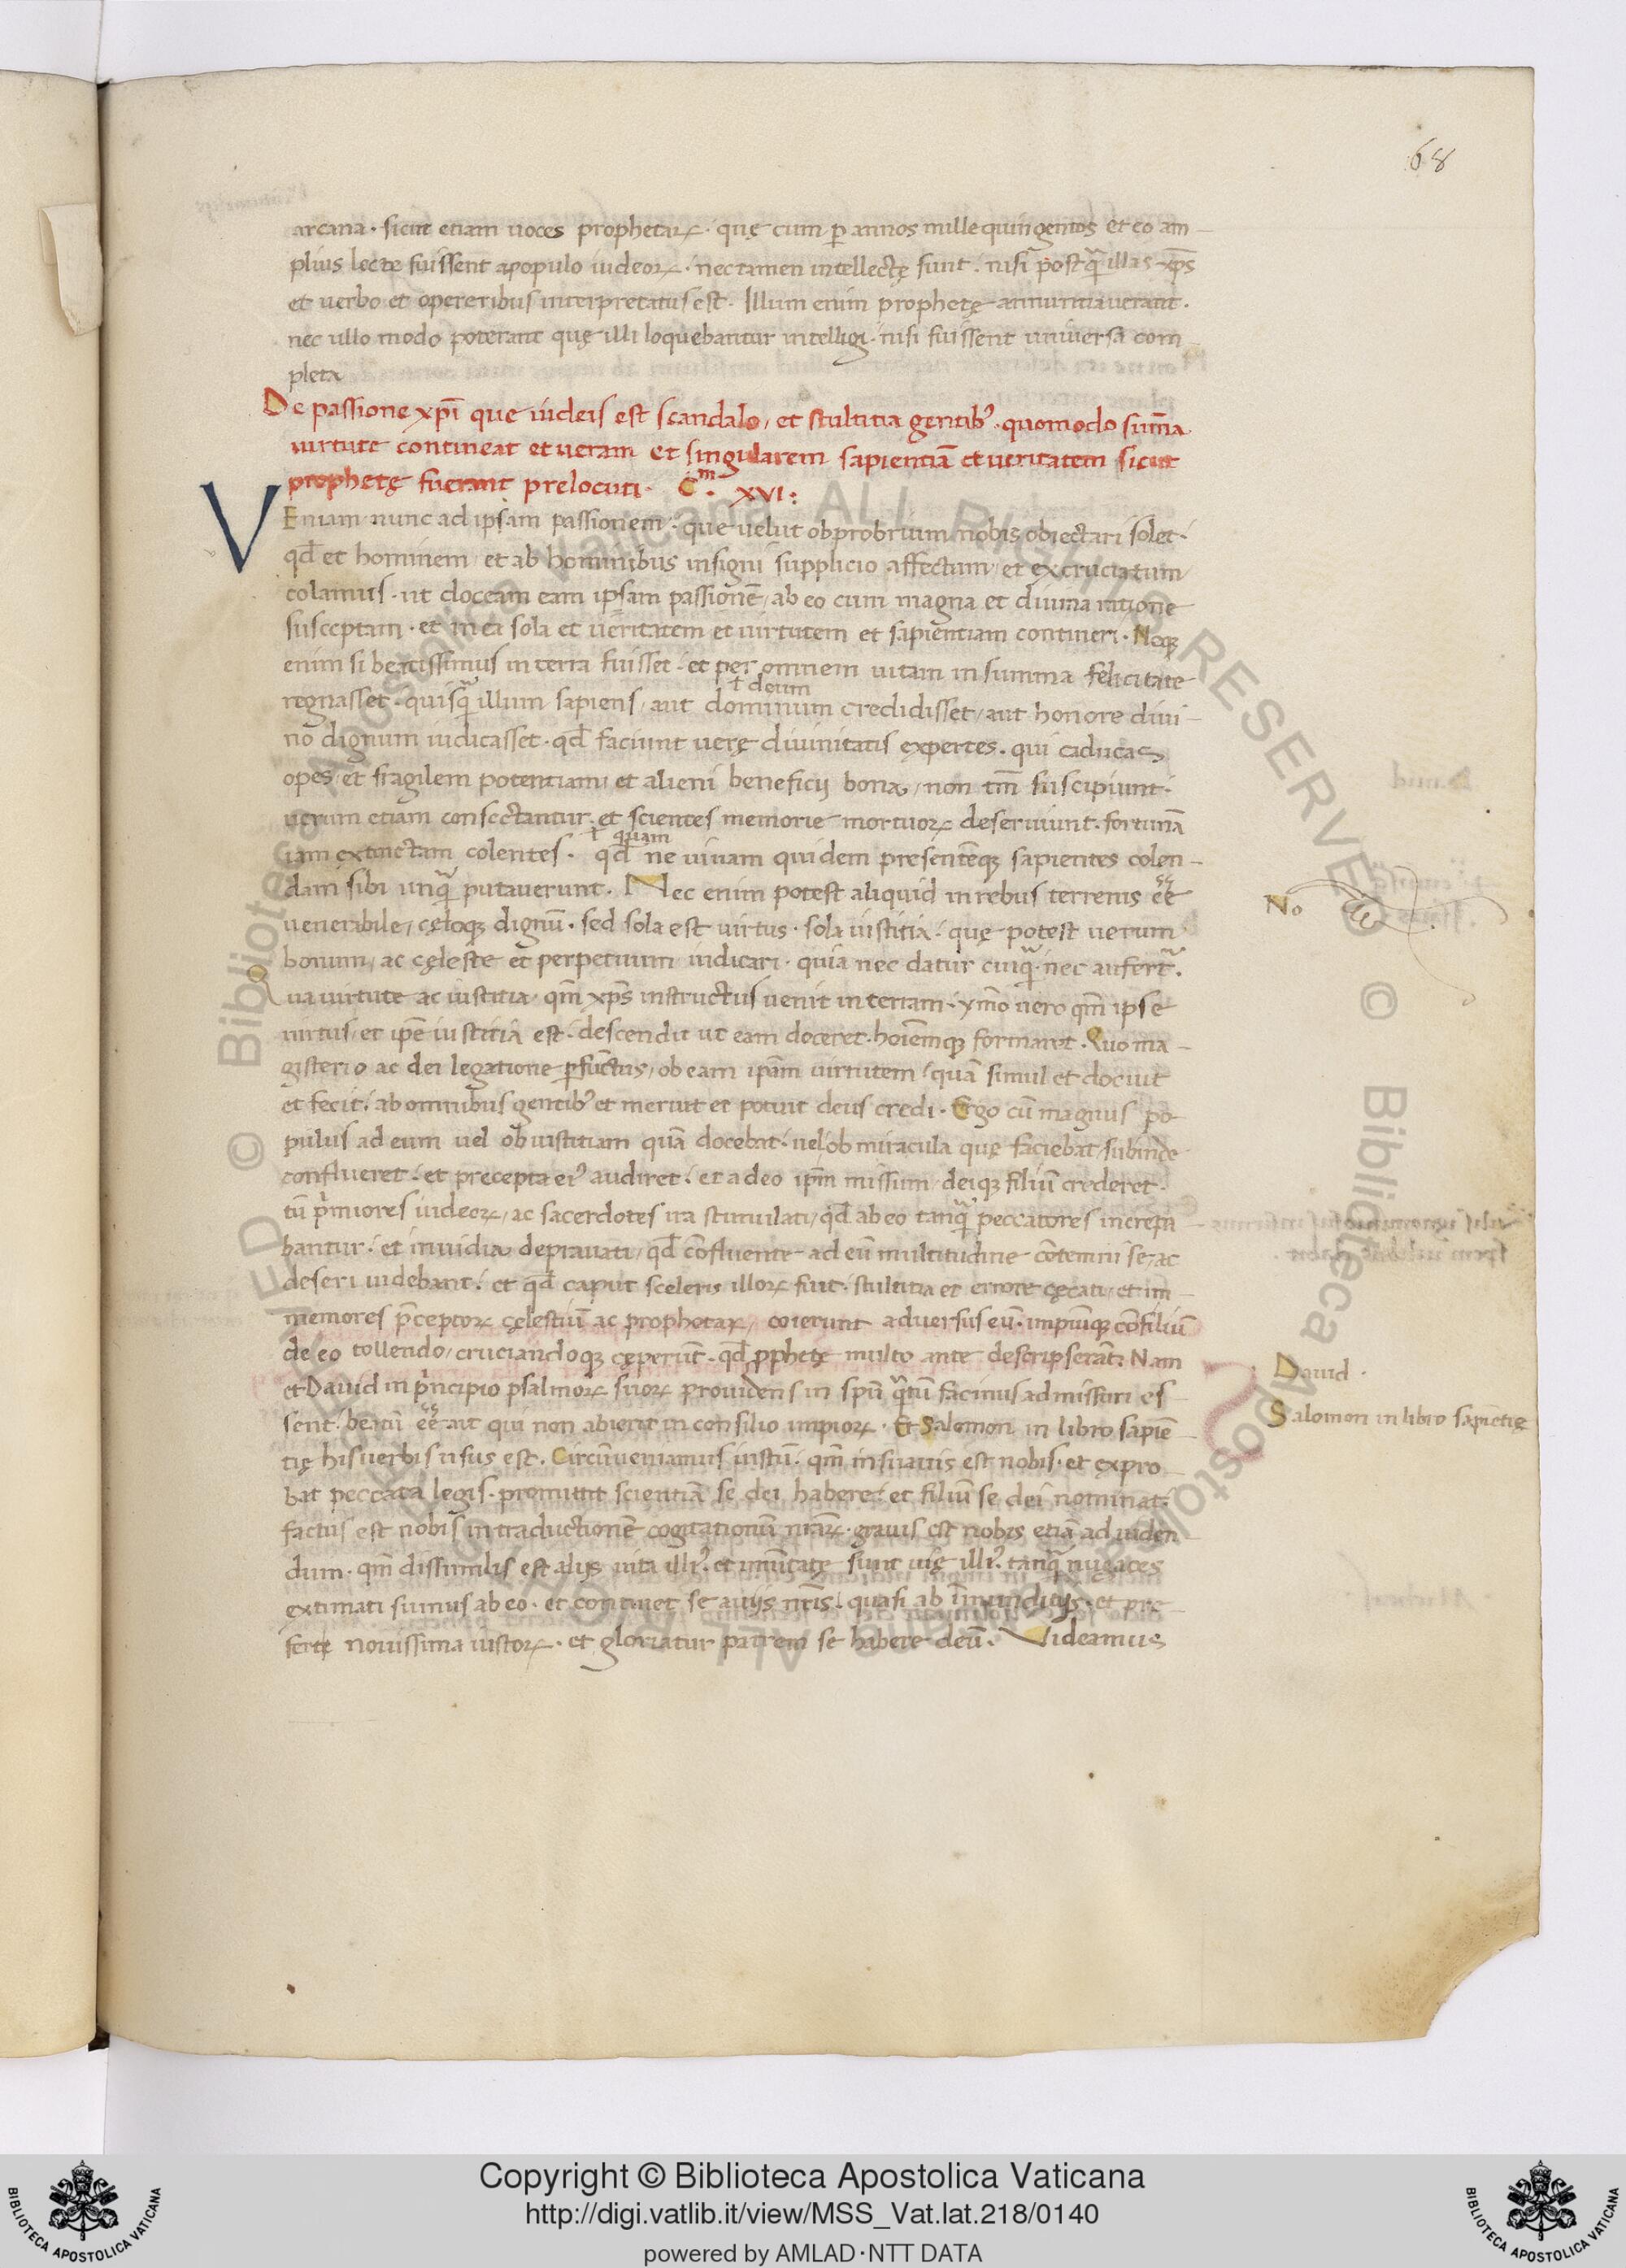 68
arcana · sicut etiam uoces prophetaꝝ · quę cum ꝑ annos mille quingentos et eo am-
plius lectę fuissent apopulo iudeoꝝ · nec tamen intellectę sunt · nisi postq̃ illas xp̃s
et uerbo et operibus interpretatus est · Illum enim prophetę annuntiauerant ·
nec ullo modo poterant quę illi loquebantur intelligi · nisi fuissent uniuersa com
pleta
De passione xp̃i que iudeis est scandalo / et stultitia gentibꝰ · quomodo sum̃a
uirtute contineat et ueram et singularem sapientiã et ueritatem sicut
prophetę fuerant prelocuti · C.m XVI:
VEniam nunc ad ipsam passionem · que uelut obprobrium nobis obiectari solet ·
qđ et hominem / et ab hominibus insigni supplicio affectum / et excruciatum /
colamus · ut doceam eam ipsam passionẽ / ab eo cum magna et diuina ratione
susceptam · et in ea sola et ueritatem et uirtutem et sapientiam contineri · Neqꝫ
enim si beatissimus in terra fuisset · et per omnem uitam in summa felicitate
ł deum
regnasset · quisq̃ illum sapiens / aut dominum credidisset / aut honore diui-
no dignum iudicasset · qđ faciunt uerę diuinitatis expertes · qui caducas
opes / et fragilem potentiam / et alieni beneficij bona / non tm̃ suscipiunt ·
uerum etiam consectantur · et scientes memorie mortuoꝝ deseruiunt · fortunã
ł quam
iam extinctam colentes · qđ ne uiuam quidem presentẽqꝫ sapientes colen-
dam sibi unq̃ putauerunt · Nec enim potest aliquid in rebus terrenis eẽ
uenerabile / cęloqꝫ dignũ · sed sola est uirtus · sola iustitia · quę potest uerum
bonum / ac cęleste et perpetuum iudicari · quia nec datur cuiq̃ · nec aufert̃ ·
Qua uirtute ac iustitia / qm̃ xp̃s instructus uenit in terram · ymõ uero qm̃ ipse
uirtus / et ip̃e iustitia est · descendit ut eam doceret · hoĩemqꝫ formaret · Quo ma-
gisterio ac dei legatione ꝑfũctus / ob eam ip̃am uirtutem / quã simul et docuit
et fecit · ab omnibus gentibꝰ et meruit et potuit deus credi · Ergo cũ magnus po-
pulus ad eum uel ob iustitiam quã docebat · uel ob miracula quę faciebat / subinde
conflueret · et precepta eiꝰ audiret · et a deo ip̃m missum / deiqꝫ filiũ crederet ·
tũ p̃miores iudeoꝝ / ac sacerdotes ira stimulati / qđ ab eo tanq̃ peccatores increpa-
bantur · et inuidia deprauati / qđ cõfluente ad eũ multitudine cõtemni se / ac
deseri uidebant · et qđ caput sceleris illoꝝ fuit · stultitia et errore cęcati / et im-
memores p̃ceptoꝝ cęlestiũ ac prophetaꝝ / coierunt aduersus eũ · impiũqꝫ cõsiliũ
de eo tollendo / cruciandoqꝫ cęperũt · qđ ꝓphetę multo ante descripserãt · Nam
et Dauid in p̃ncipio psalmoꝝ suoꝝ prouidens in spũ q̃tũ facinus admissuri es-
sent · beatũ eẽ ait qui non abierit in consilio impioꝝ · Et Salomon in libro sapiẽ-
tię his uerbis usus est · Circũueniamus iustũ · qm̃ insuauis est nobis · et expro-
bat peccata legis · promittit scientiã se dei habere · et filiũ se dei nominat ·
factus est nobis in traductionẽ cogitationũ nr̃aꝝ · grauis est nobis etiã ad uiden-
dum · qm̃ dissimilis est alijs uita illiꝰ · et mutatę sunt uię illiꝰ · tanq̃ nugaces
extimati sumus ab eo · et continet se a uijs nr̃is / quasi ab ĩmunditijs · et pre-
fert nouissima iustoꝝ · et gloriatur patrem se habere deũ · Videamus
No
Dauid ·
Salomon in libro sapiẽtię
Copyright © Biblioteca Apostolica Vaticana
http://digi.vatlib.it/view/MSS_Vat.lat.218/0140
powered by AMLAD·NTT DATA
BIBLIOTECA APOSTOLICA VATICANA
BIBLIOTECA APOSTOLICA VATICANA